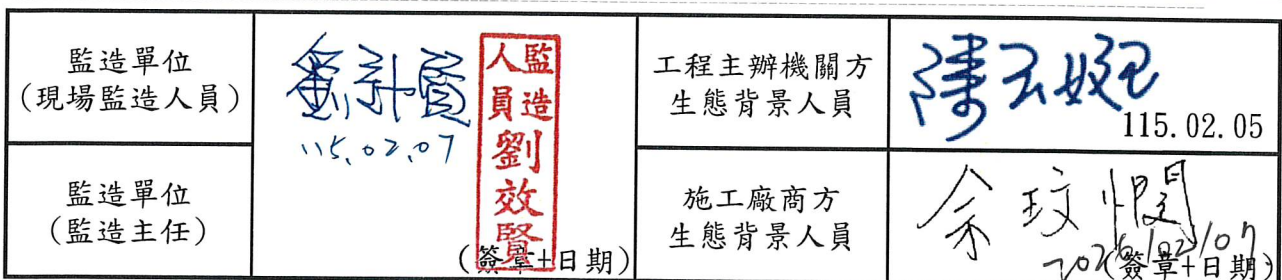 監造單位
(現場監造人員)
115.02.07
監造人員劉效賢
工程主辦機關方
生態背景人員
115.02.05
監造單位
(監造主任)
(簽章+日期)
施工廠商方
生態背景人員
余玟
2026/02/07
(簽章+日期)